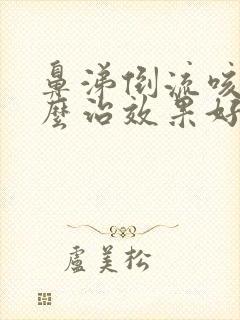 鼻涕倒流咳
麼治效果好
盧美松